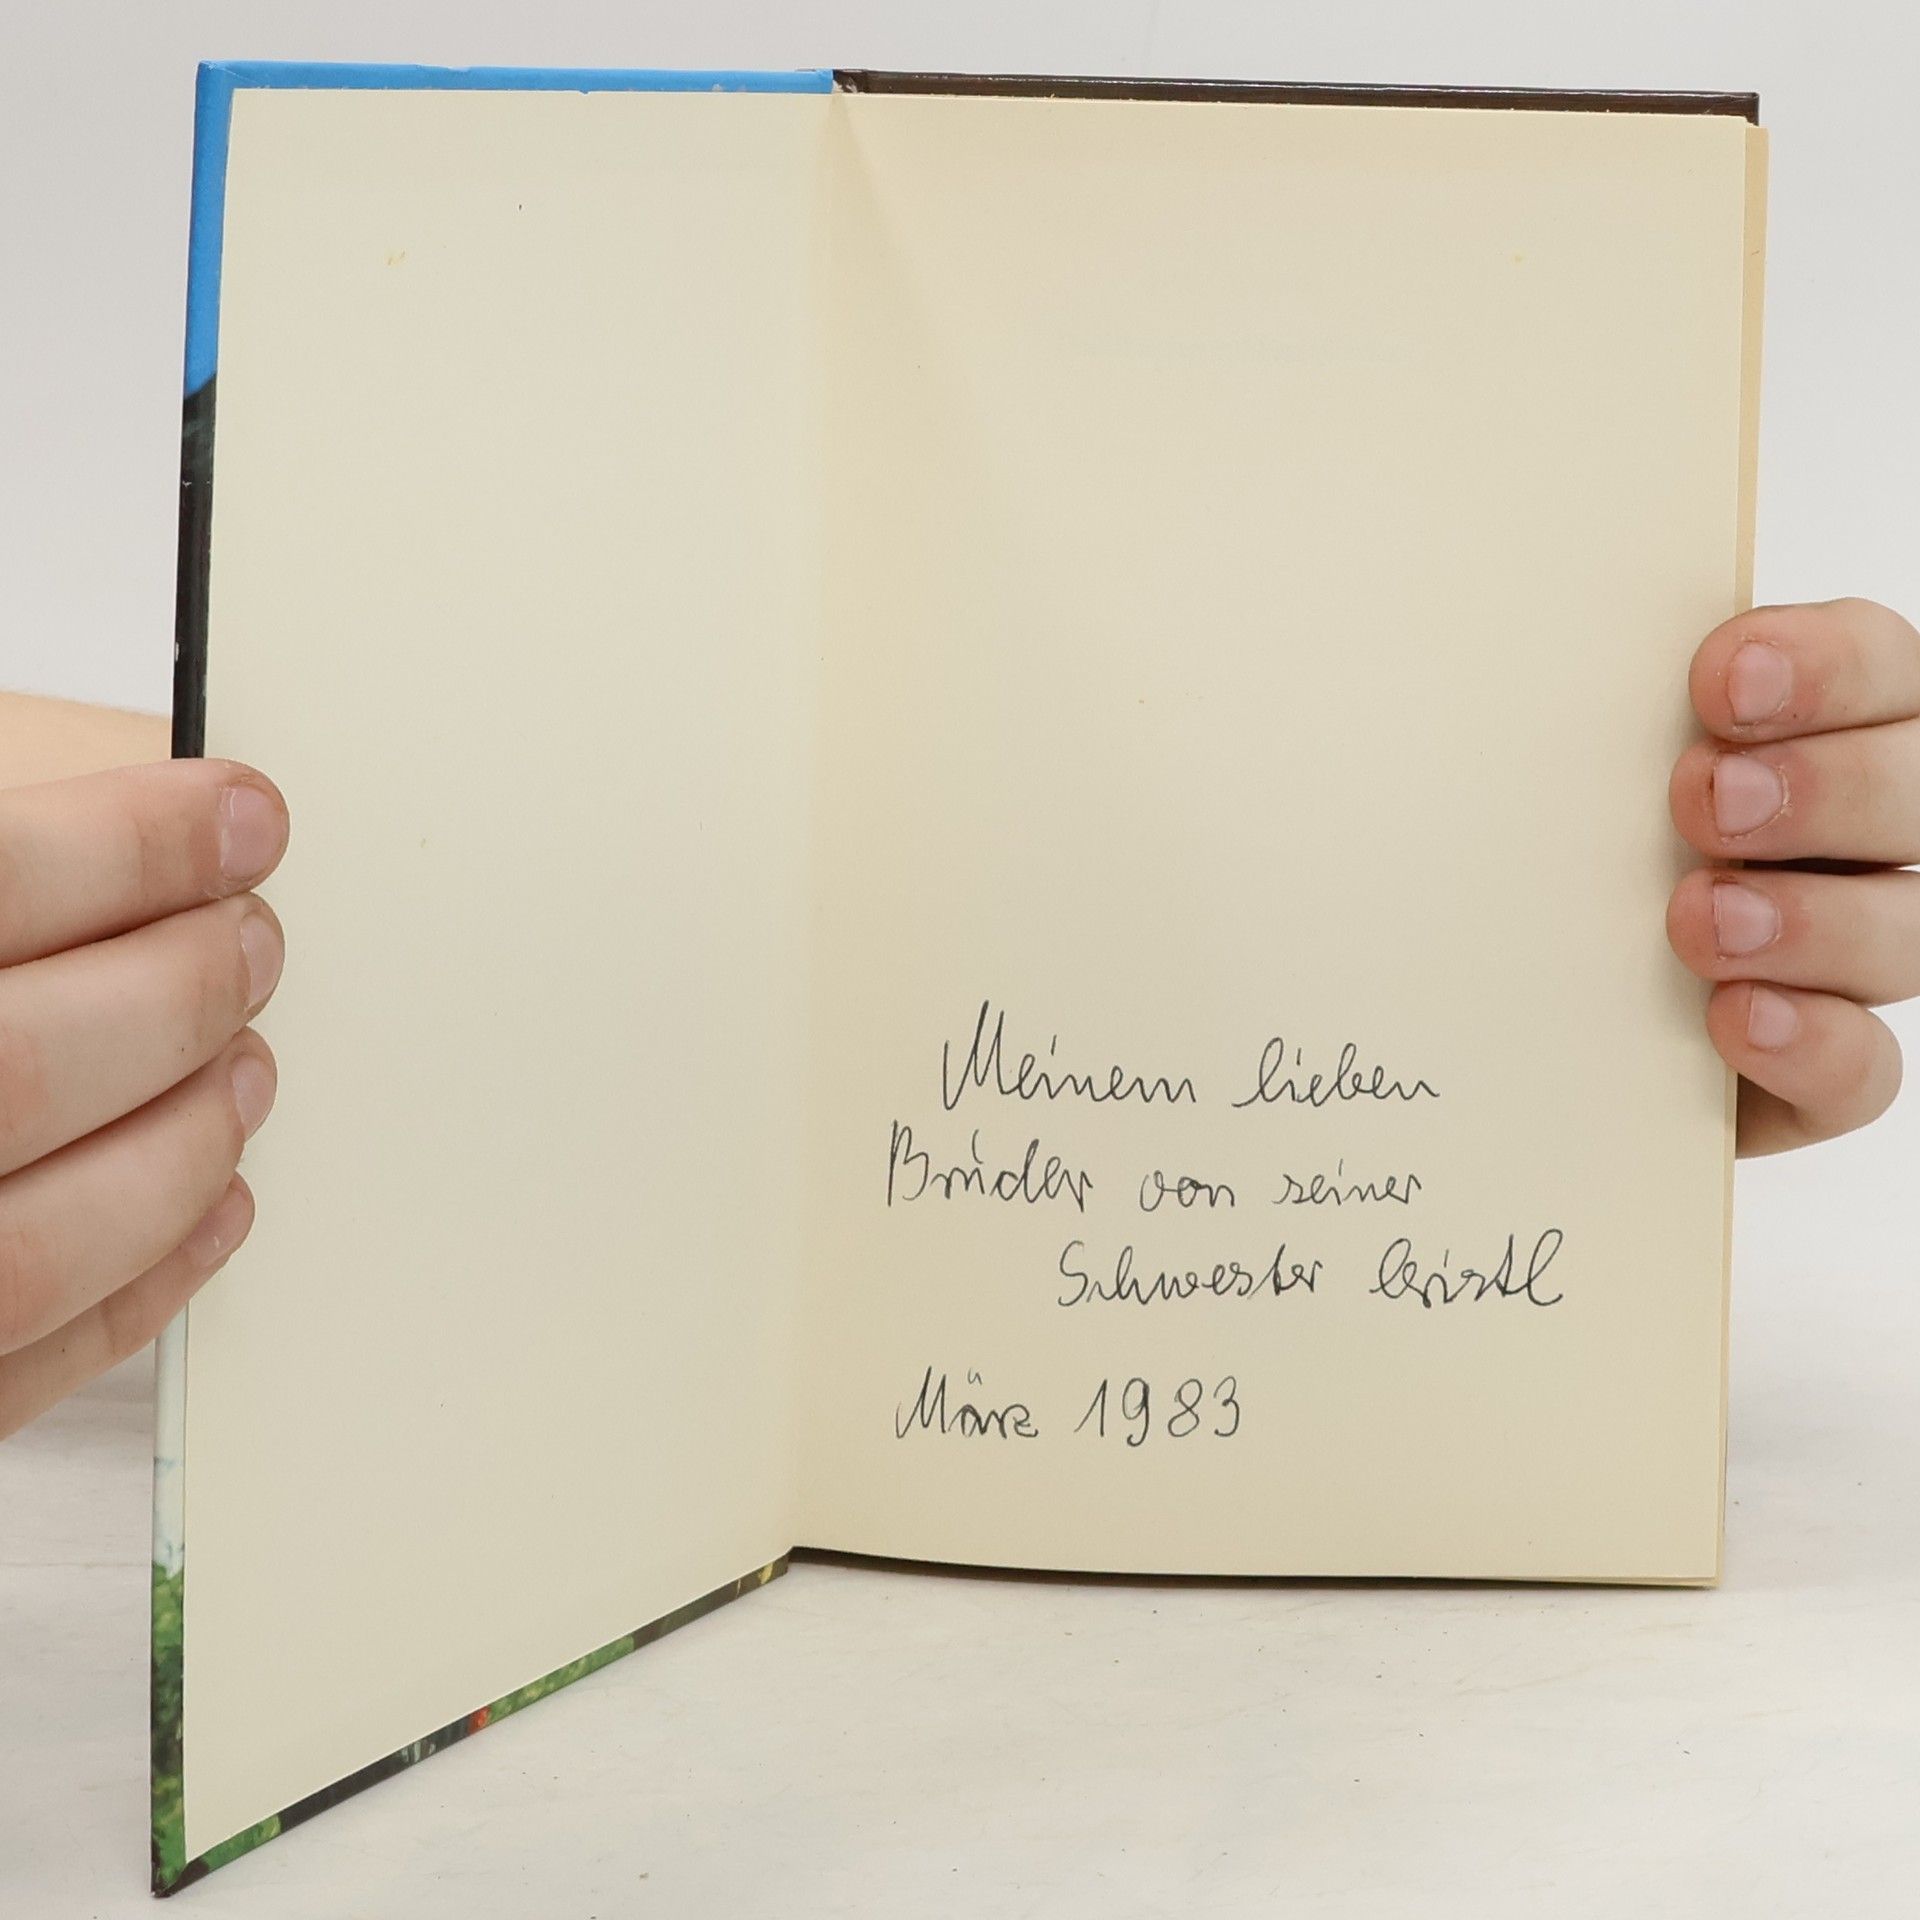 Meinem lieben
Bruder von seiner
Schwester
März 1983